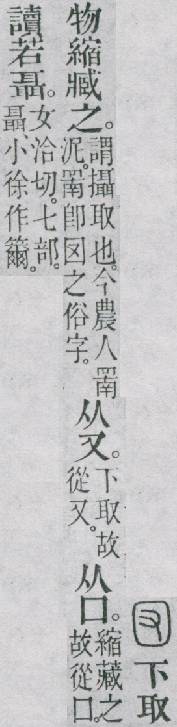 㕚下取
物縮臧之。謂攝取也。今農人罱泥。罱卽㘝之俗字。从又。下取故從又。从囗。縮藏之故從囗。
讀若聶。女洽切。七部。聶小徐作籋。